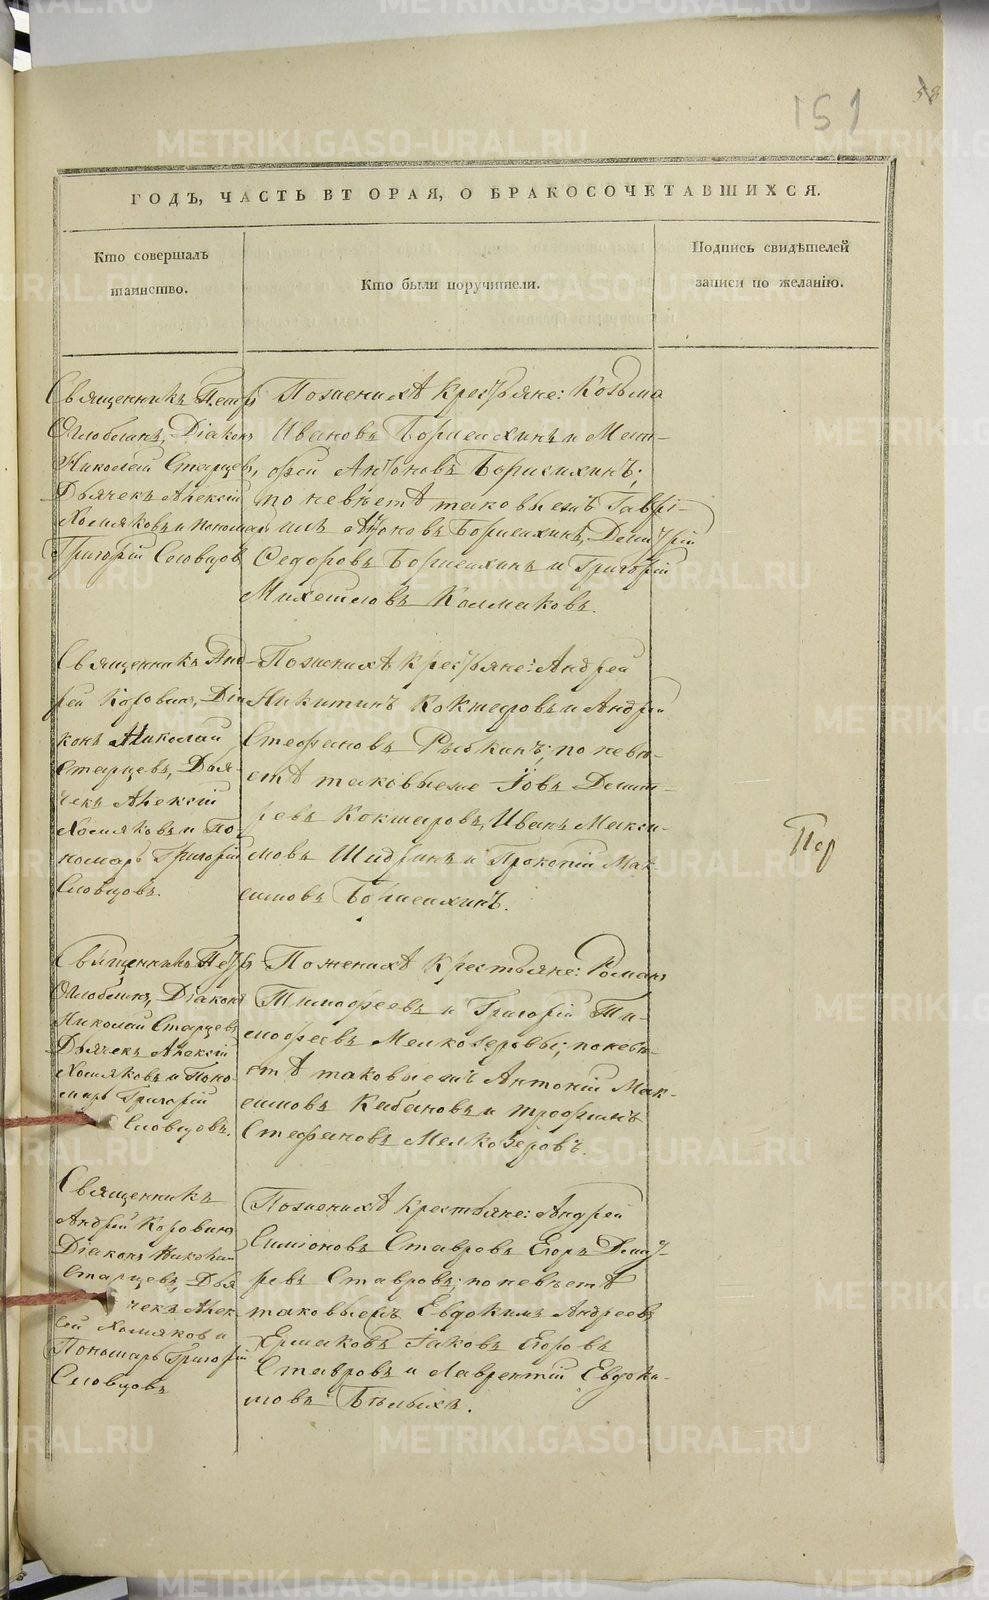 151
58
ГОДЪ, ЧАСТЬ ВТОРАЯ, О БРАКОСОЧЕТАВШИХСЯ.
Кто совершалъ
таинство.
Кто были поручители.
Подпись свидѣтелей
записи по желанію.
Священникъ Петръ
Оглоблинъ, Діаконъ
Николай Старцевъ,
Дьячекъ Алексій
Хомяковъ и Пономарь
Григорій Словцовъ
По женихѣ крестьяне: Козьма
Ивановъ Борисихинъ и Мат-
фей Антоновъ Борисихинъ;
по невѣстѣ таковыежъ Гаврі-
илъ Борисихинъ, Димитрій
Федоровъ Борисихинъ и Григорій
Михайловъ Колмаковъ.
Священникъ Анд-
рей Коровинъ, Діа-
конъ Николай
Старцевъ, Дья-
чекъ Алексій
Хомяковъ и По-
номарь Григорій
Словцовъ.
По женихѣ крестьяне: Андрей
Никитинъ Кокшаровъ и Андрей
Стефановъ Рычкинъ; по невѣ-
стѣ таковыеже Іовъ Димит-
ревъ Кокшаровъ, Иванъ Макси-
мовъ Шидринъ и Прокопій Мак-
симовъ Борисихинъ.
Пер
Священникъ Петръ
Оглоблинъ, Діаконъ
Николай Старцевъ
Дьячекъ Алексій
Хомяковъ и Поно-
марь Григорій
Словцовъ.
По женихѣ крестьяне: Романъ
Тимофеевъ и Григорій Ти-
мофеевъ Мелкозеровы; по невѣ-
стѣ таковыежъ Антоній Мак-
симовъ Кабановъ и Трофимъ
Стефановъ Мелкозеровъ.
Священникъ
Андрей Коровинъ
Діаконъ Николай
Старцевъ, Дья-
чекъ Алек-
сій Хомяковъ и
Пономарь Григорій
Словцовъ
По женихѣ крестьяне: Андрей
Симіоновъ Ставровъ Егоръ Димит-
ревъ Ставровъ; по невѣстѣ
таковыежъ Евдокимъ Андреевъ
Ермаковъ Іаковъ Егоровъ
Ставровъ и Лаврентій Евдоки-
мовъ Бѣлыхъ.
METRIKI.GASO-URAL.RU